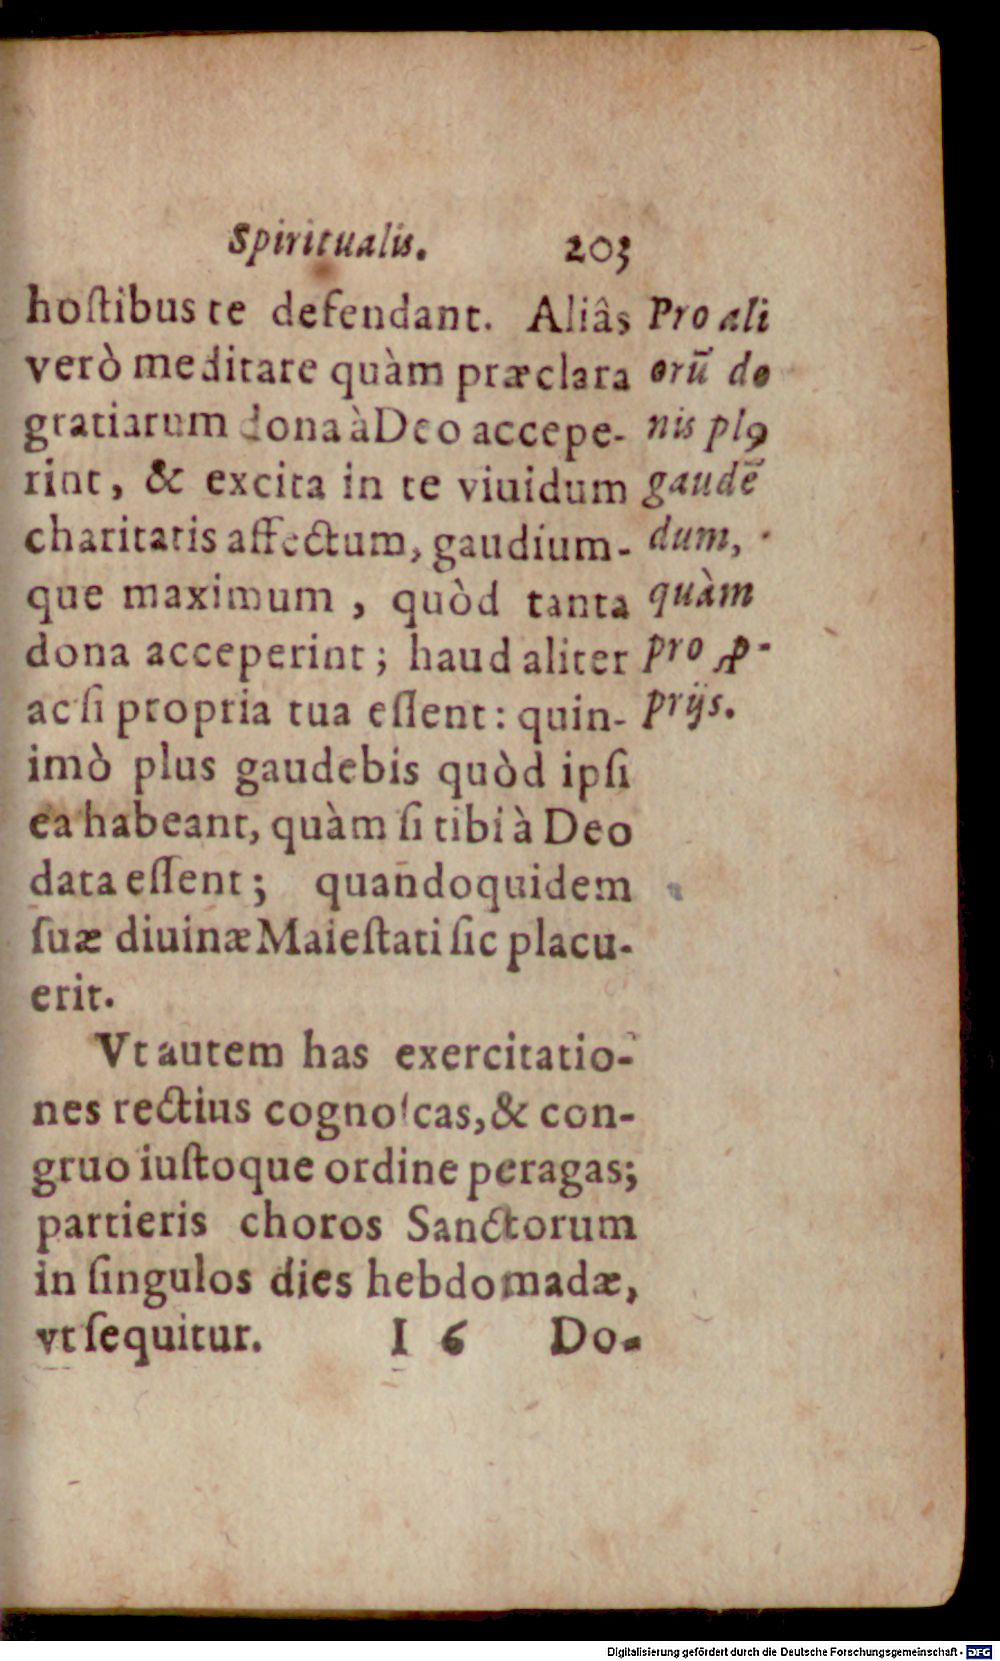 Spiritualis. 203
hoſtibus te defendant. Aliâs
verò meditare quàm præclara
gratiarum dona à Deo accepe-
rint, & excita in te viuidum
charitatis affectum, gaudium-
que maximum, quòd tanta
dona acceperint; haud aliter
ac ſi propria tua eſſent: quin-
imò plus gaudebis quòd ipſi
ea habeant, quàm ſi tibi à Deo
data eſſent; quandoquidem
ſuæ diuinæ Maieſtati ſic placu-
erit.
Vt autem has exercitatio-
nes rectius cognoſcas, & con-
gruo iuſtoque ordine peragas;
partieris choros Sanctorum
in ſingulos dies hebdomadæ,
vt ſequitur. I 6 Do-
Pro ali
orū do
nis plꝰ
gaudē
dum,
quàm
pro ꝓ-
prijs.
Digitalisierung gefördert durch die Deutsche Forschungsgemeinschaft - DFG